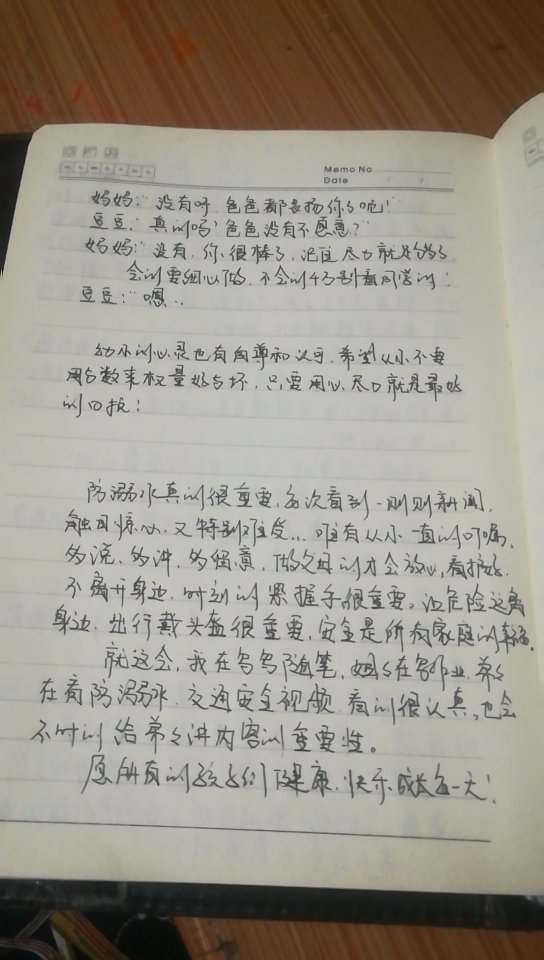 Memo No
Date
妈妈:"没有呀,爸爸都表扬你了呢!"
豆豆:"真的吗?爸爸没有不愿意?"
妈妈:"没有,你很棒了,记住尽力就是的了
会的要细心做,不会的千万别看同学的!
豆豆:"嗯..
幼小的心灵也有自尊和认可,希望从小不要
用分数来权量好与坏,只要用心,尽力就是最好
的回报!
防溺水真的很重要,每次看到一则则新闻,
触目惊心,又特别难受...唯有从小一直的叮嘱,
多说,多讲,多留意,做父母的才会放心,看护好,
不离开身边,时刻的紧握手很重要。让危险远离
身边,出行戴头盔很重要,安全是所有家庭的幸福.
就这会,我在写写随笔,姐姐在写作业,弟弟
在看防溺水,交通安全视频,看的很认真,也会
不时的给弟弟讲内容的重要性。
愿所有的孩子们健康,快乐成长每一天!